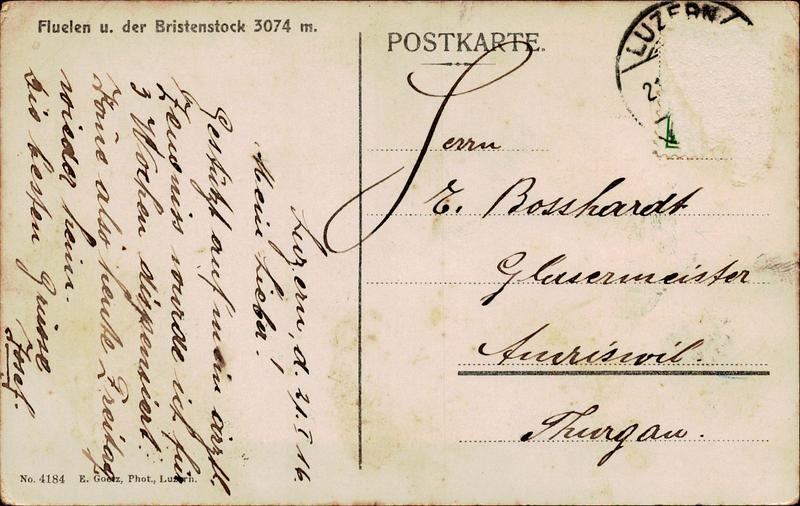 Fluelen u. der Bristenstock 3074 m.
POSTKARTE.
LUZERN
Luzern, d. 21.I 16.
Mein Lieber!
Gestützt auf mein ärztl.
Zeugniss wurde ich für
3 Wochen dispensiert.
Komme also heute Freitag
wieder heim.
Die besten Grüsse
Josef.
Herrn
E. Bosshardt
Glasermeister
Amriswil.
Thurgau.
No. 4184 E. Goetz, Phot., Luzern.